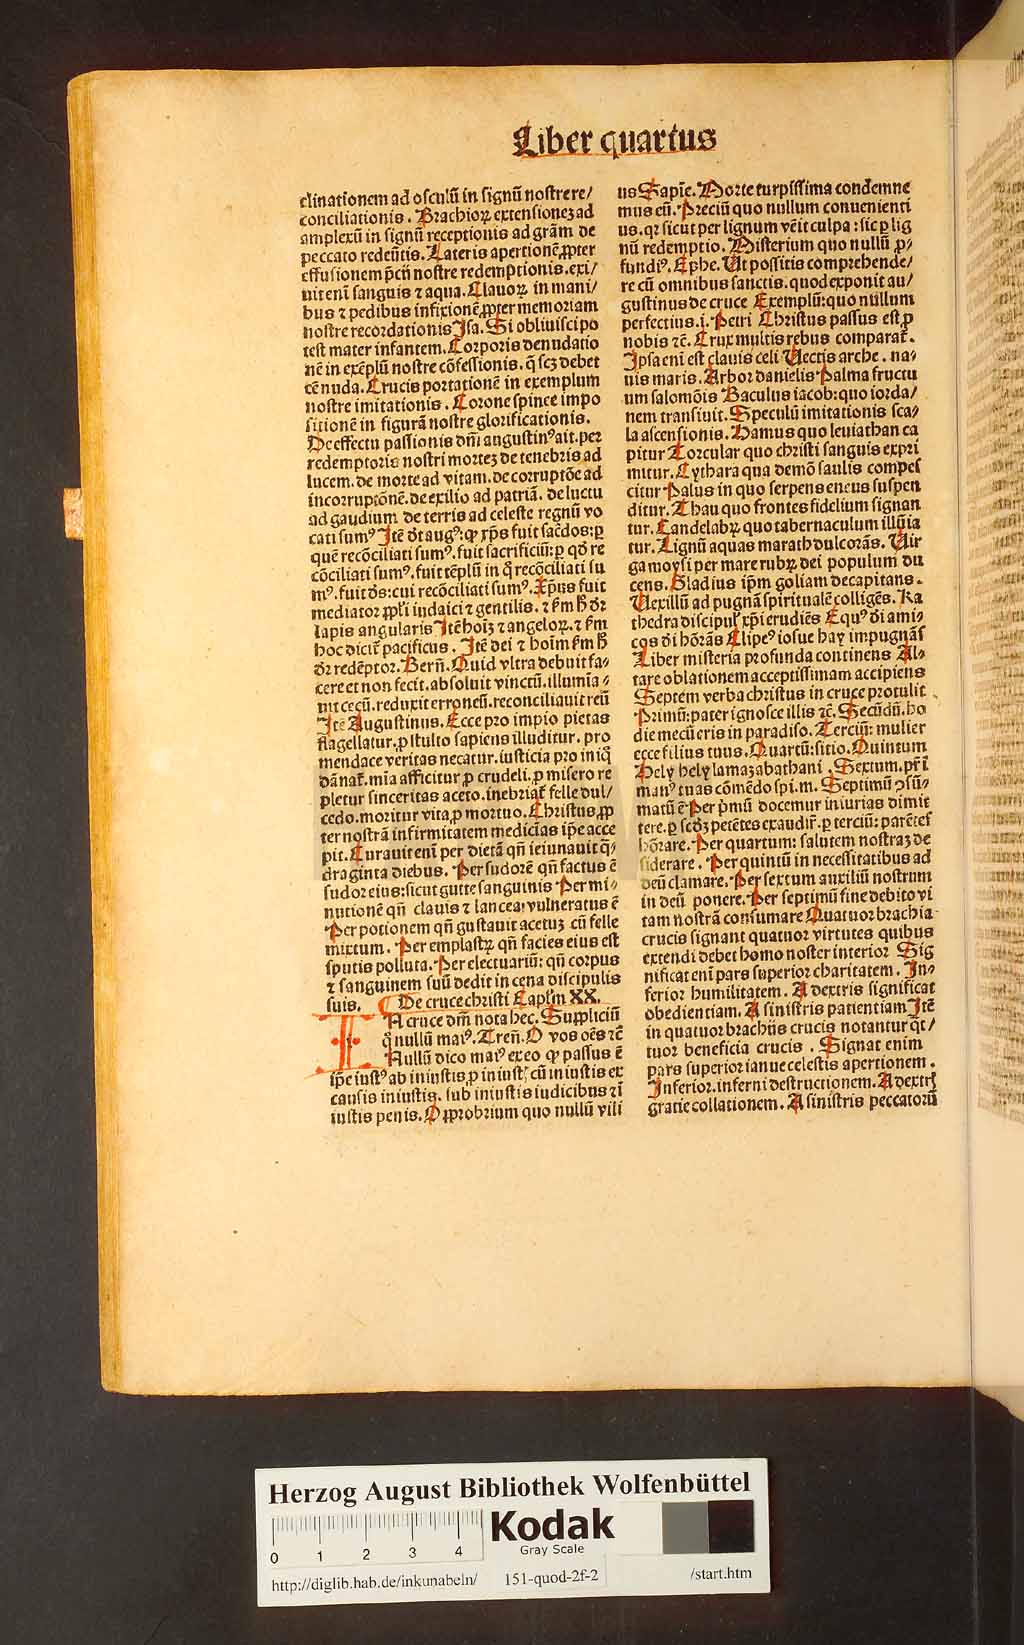 Liber quartus
clinationem ad osculū in signū nostre re/
conciliationis. Brachioꝝ extensioneʒ ad
amplexū in signū receptionis ad grām de
peccato redeūtis. Lateris apertionē ꝓpter
effusionem p̄cii nostre redemptionis. exi/
uit eni sanguis ⁊ aqua. Clauoꝝ in mani/
bus ⁊ pedibus infixionē ꝓpter memoriam
nostre recordationis Isa. Si obliuisci po
test mater infantem. Corporis denudatio
nē in exēplū nostre cōfessionis. q̄ scʒ debet
eē nuda. Crucis portationē in exemplum
nostre imitationis. Corone spinee impo
sitionē in figurā nostre glorificationis.
De effectu passionis dn̄i augustinꝰ ait. per
redemptoris nostri morteʒ de tenebris ad
lucem. de morte ad vitam. de corruptōe ad
incorruptōnē. de exilio ad patriā. de luctu
ad gaudium de terris ad celeste regnū vo
cati sumꝰ Itē dt augꝰ: qꝫ xp̄s fuit sac̄dos: ꝑ
quē recōciliati sumꝰ. fuit sacrificiū: ꝑ qd̄ re
cōciliati sumꝰ. fuit tēplū in q̄ recōciliati su
mꝰ. fuit ds: cui recōciliati sumꝰ. Xp̄us fuit
mediator ppl̄i iudaici ⁊ gentilis. ⁊ fm h̄ dr̄
lapis angularis Itē hoīʒ ⁊ angeloꝝ. ⁊ fm
hoc dicit̄ pacificus. Itē dei ⁊ hoīm fm h̄
dr̄ redēptor. Bern̄. Quid vltra debuit fa⸗
cere et non fecit. absoluit vinctū. illumīa⸗
uit cecū. reduxit erroneū. reconciliauit reū
Itē Augustinus. Ecce pro impio pietas
flagellatur. ꝓ stulto sapiens illuditur. pro
mendace veritas necatur. iusticia pro iniq̄
dānat̄. mīa afficitur ꝓ crudeli. ꝓ misero re
pletur sinceritas aceto. inebriat̄ felle dul/
cedo. moritur vita ꝓ mortuo. Christus ꝓp
ter nostrā infirmitatem medicīas ip̄e acce
pit. Curauit eni per dietā qn̄ ieiunauit q̄⸗
draginta diebus. Per sudorē qn̄ factus ē
sudor eius: sicut gutte sanguinis Per mi⸗
nutionē qn̄ clauis ⁊ lancea: vulneratus ē
Per potionem qn̄ gustauit acetuʒ cū felle
mixtum. Per emplastꝝ qn̄ facies eius est
sputis polluta. Per electuariū: qn̄ corpus
⁊ sanguinem suū dedit in cena discipulis
suis. De cruce christi Caplm XX.
A cruce dn̄i nota hec. Suppliciū
q̄ nullū maiꝰ. Tren̄. O vos oēs ⁊ē
Nullū dico maiꝰ ex eo qꝫ passus ē
ip̄e iustꝰ ab iniustis ꝓ iniustꝭ cū iniustis ex
causis iniustis. sub iniustis iudicibus ⁊ ī
iustis penis. Opprobrium quo nullū vili
us Sapīe. Morte turpissima condemne
mus eū. Preciū quo nullum conuenienti
us. qꝛ sicut per lignum vēit culpa: sic ꝑ lig
nū redemptio. Misterium quo nullū ꝓ⸗
fundiꝰ. Ephe. Ut possitis comprehende/
re cū omnibus sanctis. quod exponit au/
gustinus de cruce Exemplū: quo nullum
perfectius. i. Petri Christus passus est ꝓ
nobis ⁊c̄. Crux multis rebus comparat̄.
Ipsa eni est clauis celi Uectis arche. na⸗
uis maris. Arbor danielis Palma fructu
um salomōis Baculus iacob: quo iorda/
nem transiuit. Speculū imitationis sca⸗
la ascensionis. Hamus quo leuiathan ca
pitur Torcular quo christi sanguis expri
mitur. Cythara qua demō saulis compes
citur Palus in quo serpens eneus suspen
ditur. Thau quo frontes fidelium signan
tur. Candelabꝝ quo tabernaculum illūia
tur. Lignū aquas marath dulcorās. Uir
ga moysi per mare rubꝝ dei populum du
cens. Gladius ip̄m goliam decapitans.
Uexillū ad pugnā spiritualē colligēs. Ka
thedra discipulꝭ xp̄i erudiēs Equꝰ di ami⸗
cos di hōrās Clipeꝰ iosue hay impugnās
Liber misteria profunda continens Al⸗
tare oblationem acceptissimam accipiens
Septem verba christus in cruce protulit
Primū: pater ignosce illis ⁊c̄. Secūdū. ho
die mecū eris in paradiso. Terciū: mulier
ecce filius tuus. Quartū: sitio. Quintum
Hely hely lamazabathani. Sextum. pr̄ ī
manꝰ tuas cōmēdo spi. m. Septimū ↄsū⸗
matū ē Per p̄mū docemur iniurias dimit
tere. ꝑ scdʒ petētes exaudir̄. ꝑ terciū: parētes
hōrare. Per quartum: salutem nostraʒ de
siderare. Per quintū in necessitatibus ad
deū clamare. Per sextum auxiliū nostrum
in deū ponere. Per septimū fine debito vi
tam nostrā consumare Quatuor brachia
crucis signant quatuor virtutes quibus
extendi debet homo noster interior Sig
nificat eni pars superior charitatem. In⸗
ferior humilitatem. A dextris significat
obedientiam. A sinistris patientiam Itē
in quatuor brachiis crucis notantur q̄t/
tuor beneficia crucis. Signat enim
pars superior ianue celestis apertionem.
Inferior. inferni destructionem. A dextrꝭ
gratie collationem. A sinistris peccatorū
Herzog August Bibliothek Wolfenbüttel
0 1 2 3 4
Kodak
Gray Scale
http://diglib.hab.de/inkunabeln/ 151-quod-2f-2 /start.htm